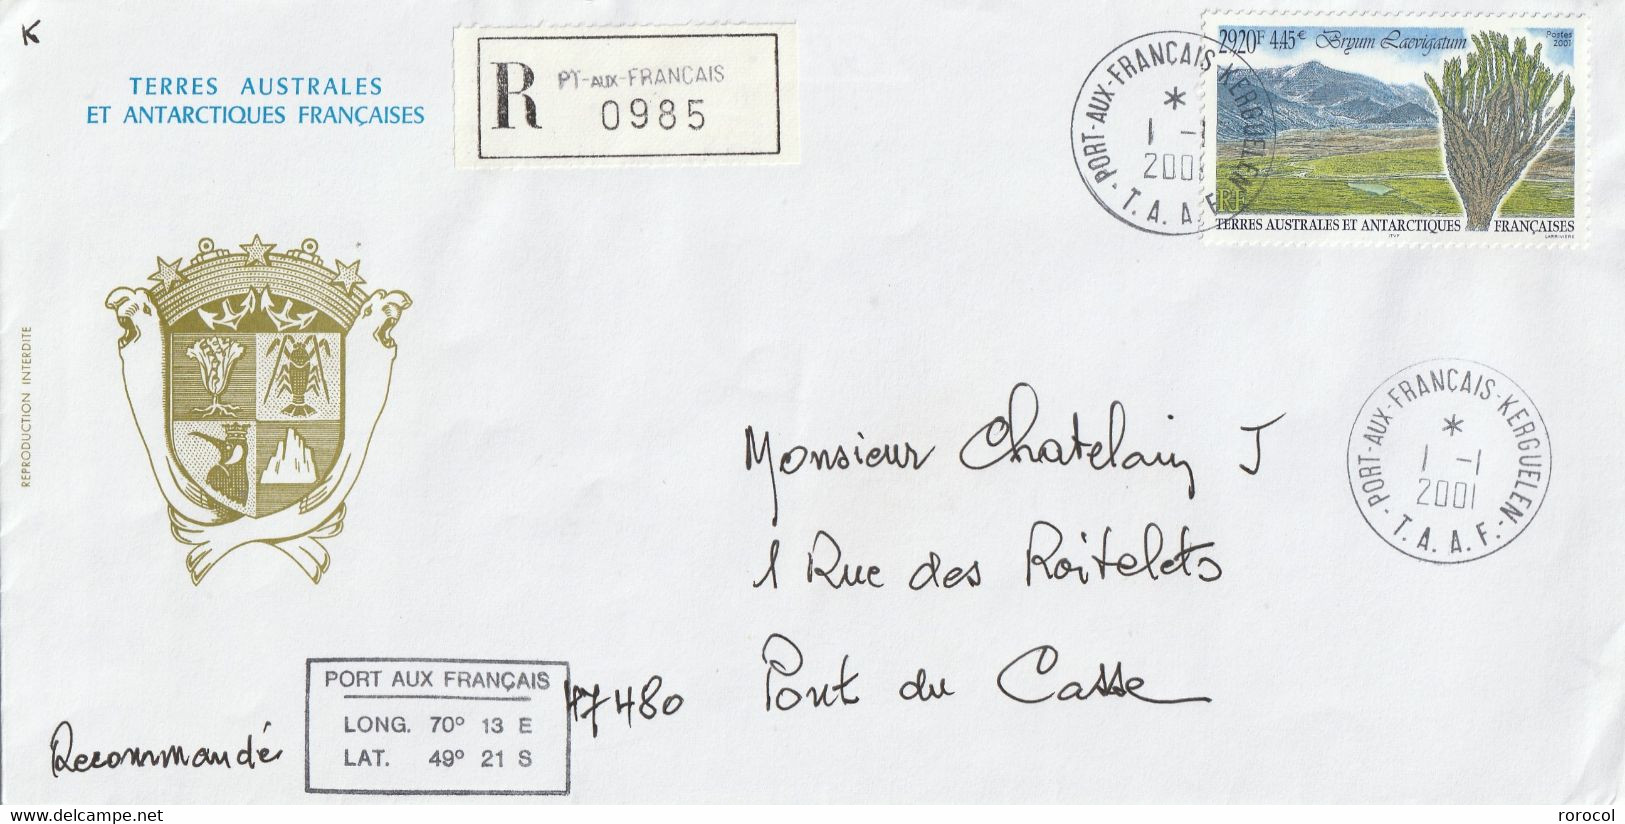 K
TERRES AUSTRALES
ET ANTARCTIQUES FRANÇAISES
R PT-AUX-FRANCAIS
0985
PORT-AUX-FRANÇAIS-KERGUELEN
*
1 -1
2001
- T. A. A. F. -
29,20F 4,45€ Bryum Laevigatum
Postes
2001
RF
TERRES AUSTRALES ET ANTARCTIQUES FRANÇAISES
ITVF
LARRIVIÈRE
REPRODUCTION INTERDITE
PORT-AUX-FRANÇAIS-KERGUELEN
*
1 -1
2001
- T. A. A. F. -
Monsieur Chatelain J
1 Rue des Roitelets
47480 Pont du Casse
PORT AUX FRANÇAIS
LONG. 70° 13 E
LAT. 49° 21 S
Recommandé
delcampe.net
rorocol